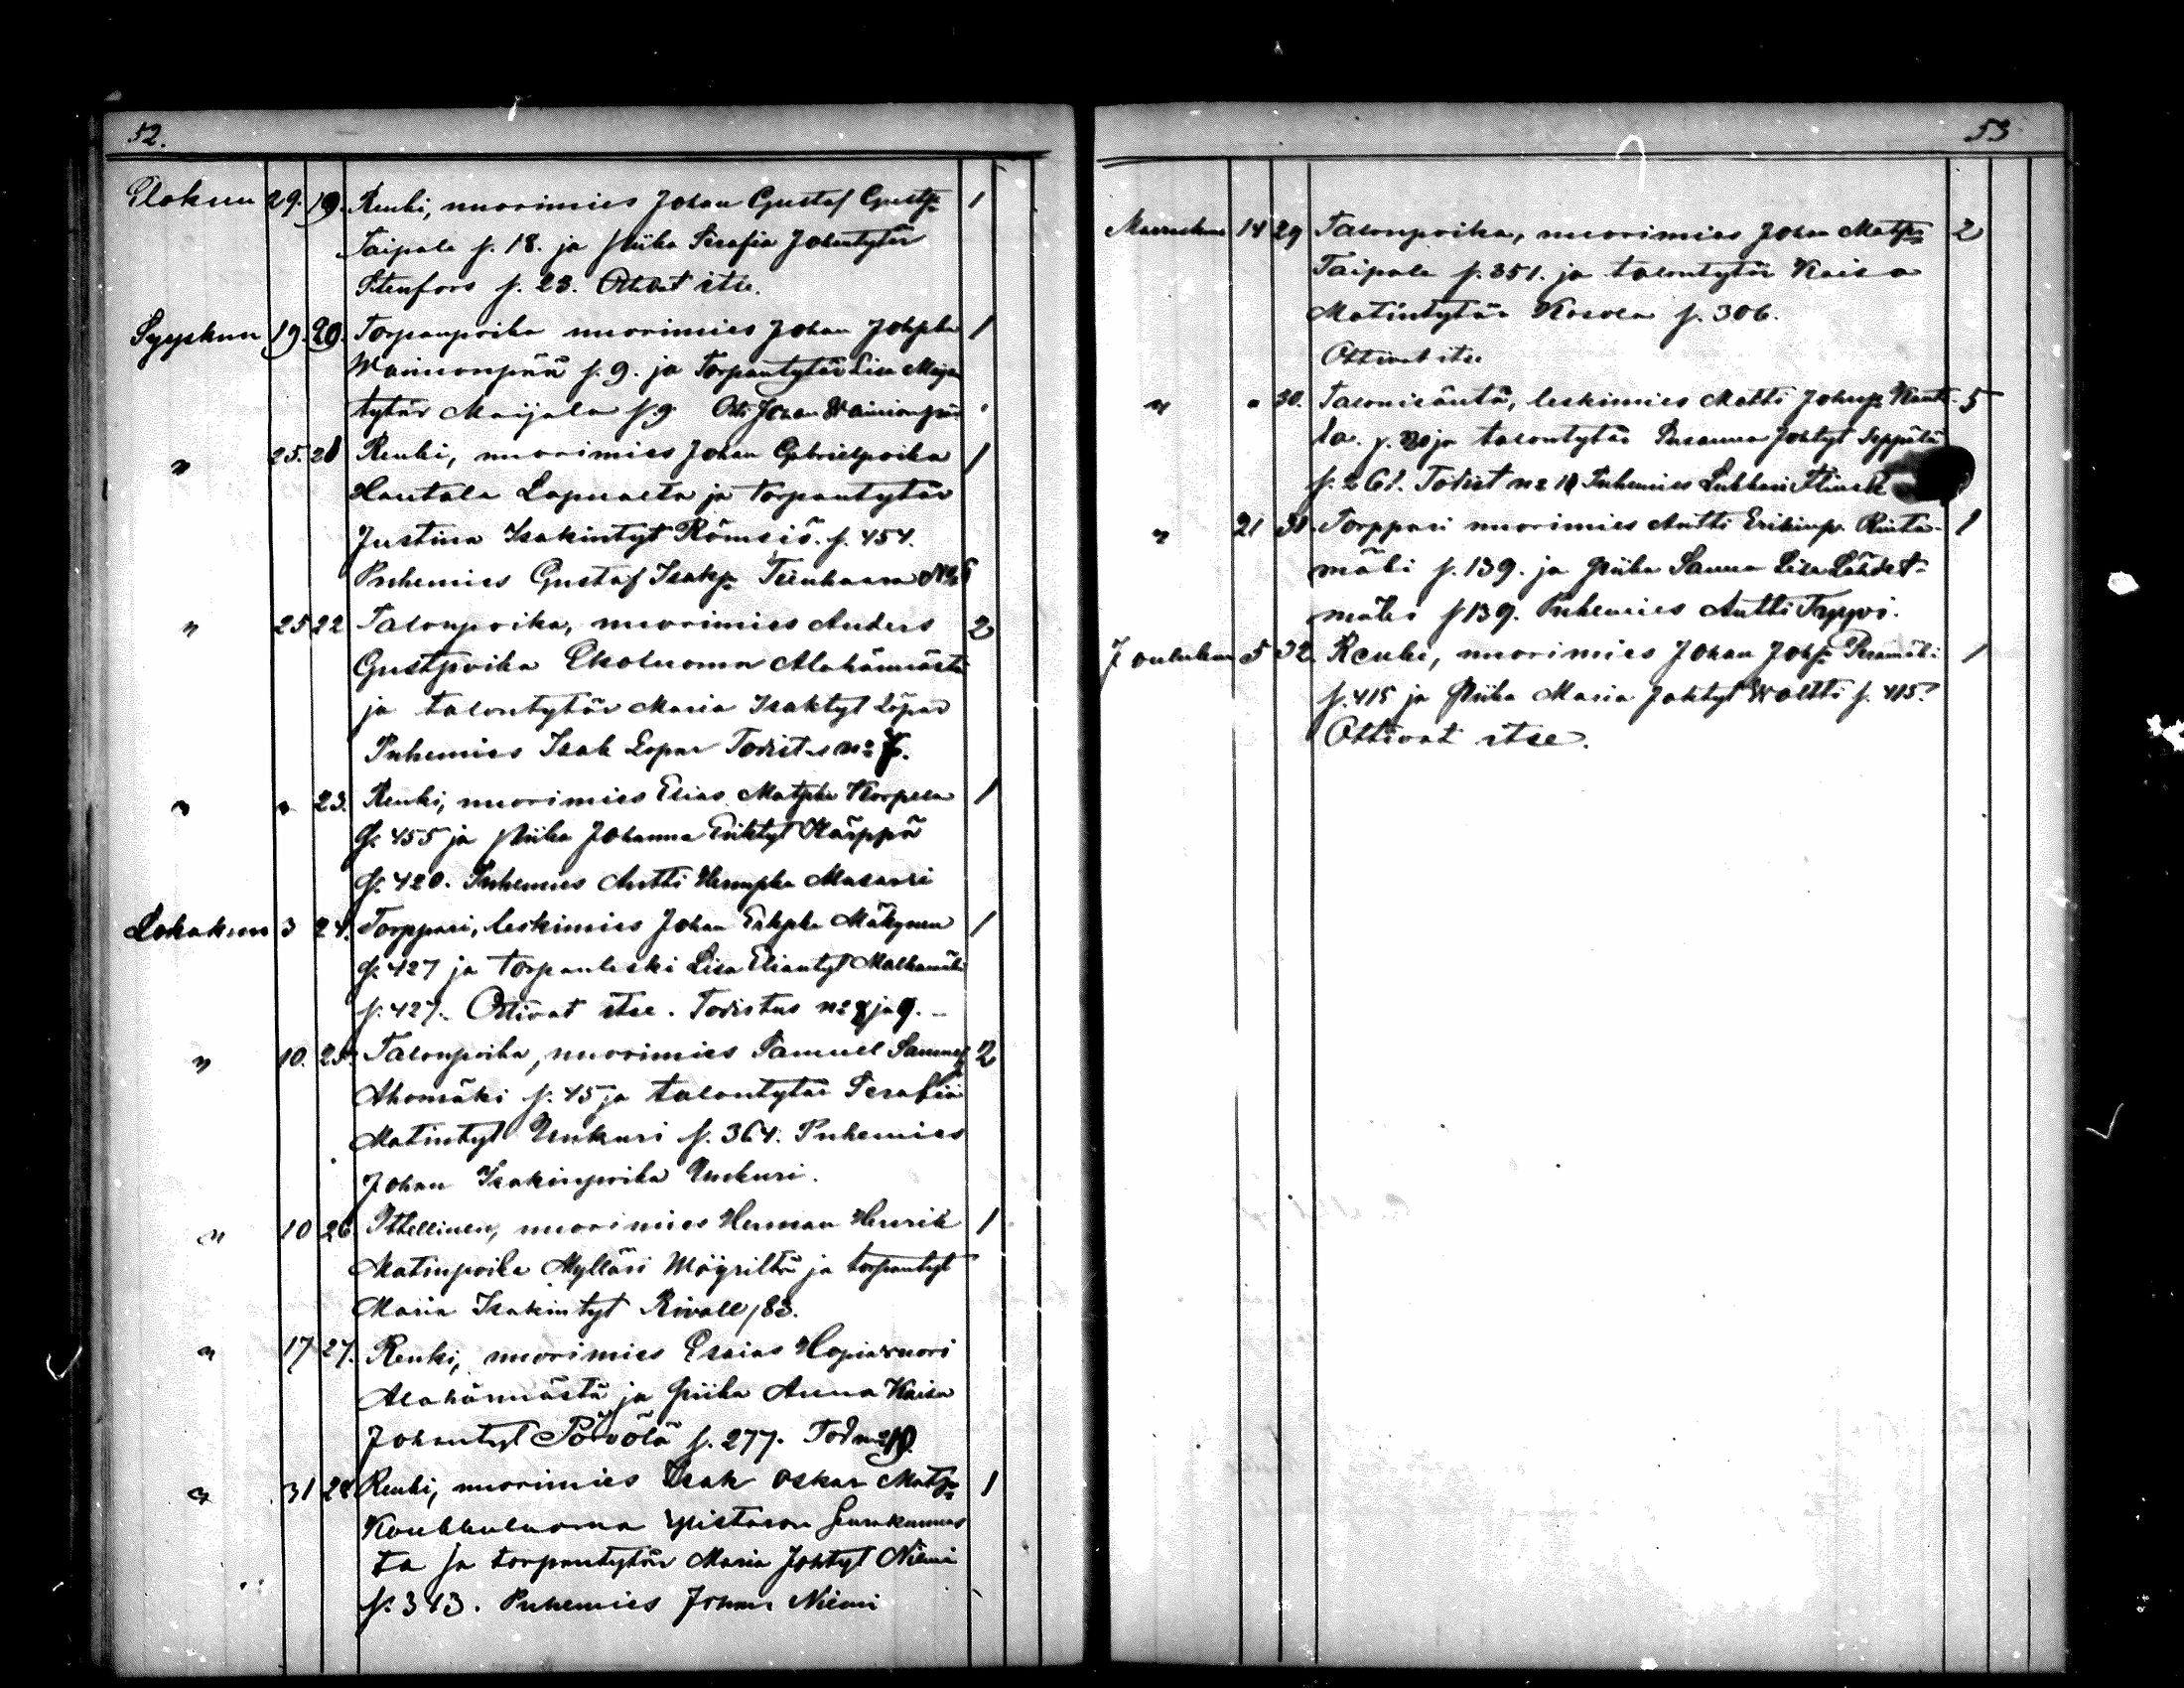 52.
Elokuun 29. 19. Renki, nuorimies Johan Gustaf Gustp. 1
Taipale s. 18. ja piika Serafia Johntytär
Stenfors s. 23. Ottivat itse.
Syyskuun 19. 20. Torpanpoika nuorimies Johan Johpka 1
Wainionpää s. 9. ja Torpantytär Lisa
tytär Maijala s. 9. Otti Johan Wainionpää
" 25. 21 Renki, nuorimies Johan Gabrielpoika 1
Hautala Lapualta ja torpantytär
Justina Isakintyt Römsiö. s. 454.
Puhemies Gustaf Isakp. No 6
" 25 22 Talonpoika, nuorimies Anders 2
Gustpoika Ekoluoma Alahärmästä
ja talontytär Maria Isaktyt Löpar
Puhemies Isak Lopar Todistus No 7.
" " 23. Renki, nuorimies Elias Matpka Korpela 1
s. 455 ja piika Johanna Eriktyt Kärppä
s. 420. Puhemies Antti Hermpka Masauri
Lokakuun 3 24. Torppari, leskimies Johan Erkpka Mäkynen 1
s. 427 ja torpanleski Lisa Eliantyt Malkamäki
s. 427. Ottivat itse. Todistus No 8 ja 9.
" 10. 25. Talonpoika, nuorimies Samuel Samuelp 2
Ahomäki s. 45 ja talontytär Serafia
Matintyt Unkuri s. 364. Puhemies
Johan Isakinpoika Unkuri.
" 10 26. Itsellinen, nuorimies Herman Henrik 1
Matinpoika Mylläri Wöyriltä ja torpantyt
Maria Isakintyt Rivall, 83.
" 17 27. Renki, nuorimies Esaias Hopiavuori
Alahärmästä ja piika Anna Kaisa
Johantyt Pörölä s. 277. Tod No 10
" 31 28 Renki, nuorimies Isak Oskar Matp. 1
Koukkuluoma Ylistaron Seurakunnas
ta ja torpantytär Maria Johtyt Niemi
s. 343. Puhemies Johan Niemi
53
Marraskuu 14 29 Talonpoika, nuorimies Johan Matp. 2
Taipale s. 351. ja talontytär Kaisa
Matintytär Kosola s. 306.
Ottivat itse
" " 30. Talonisäntä, leskimies Matti Johnp. Kant- 5
la. ja talontytär Susanna Johtyt Seppälä
s. 261. Todist No 11 Puhemies Lukkari
" 21 31. Torppari nuorimies Antti Erikinp. Rinta- 1
mäki s. 139. ja piika Sanna Lisa Lähdet-
mäki s 139. Puhemies Antti Tappoi.
Joulukuu 5 32. Renki, nuorimies Johan Johp. Peramäki 1
s. 415 ja piika Maria Johtyt Woltti s. 415.
Ottivat itse.